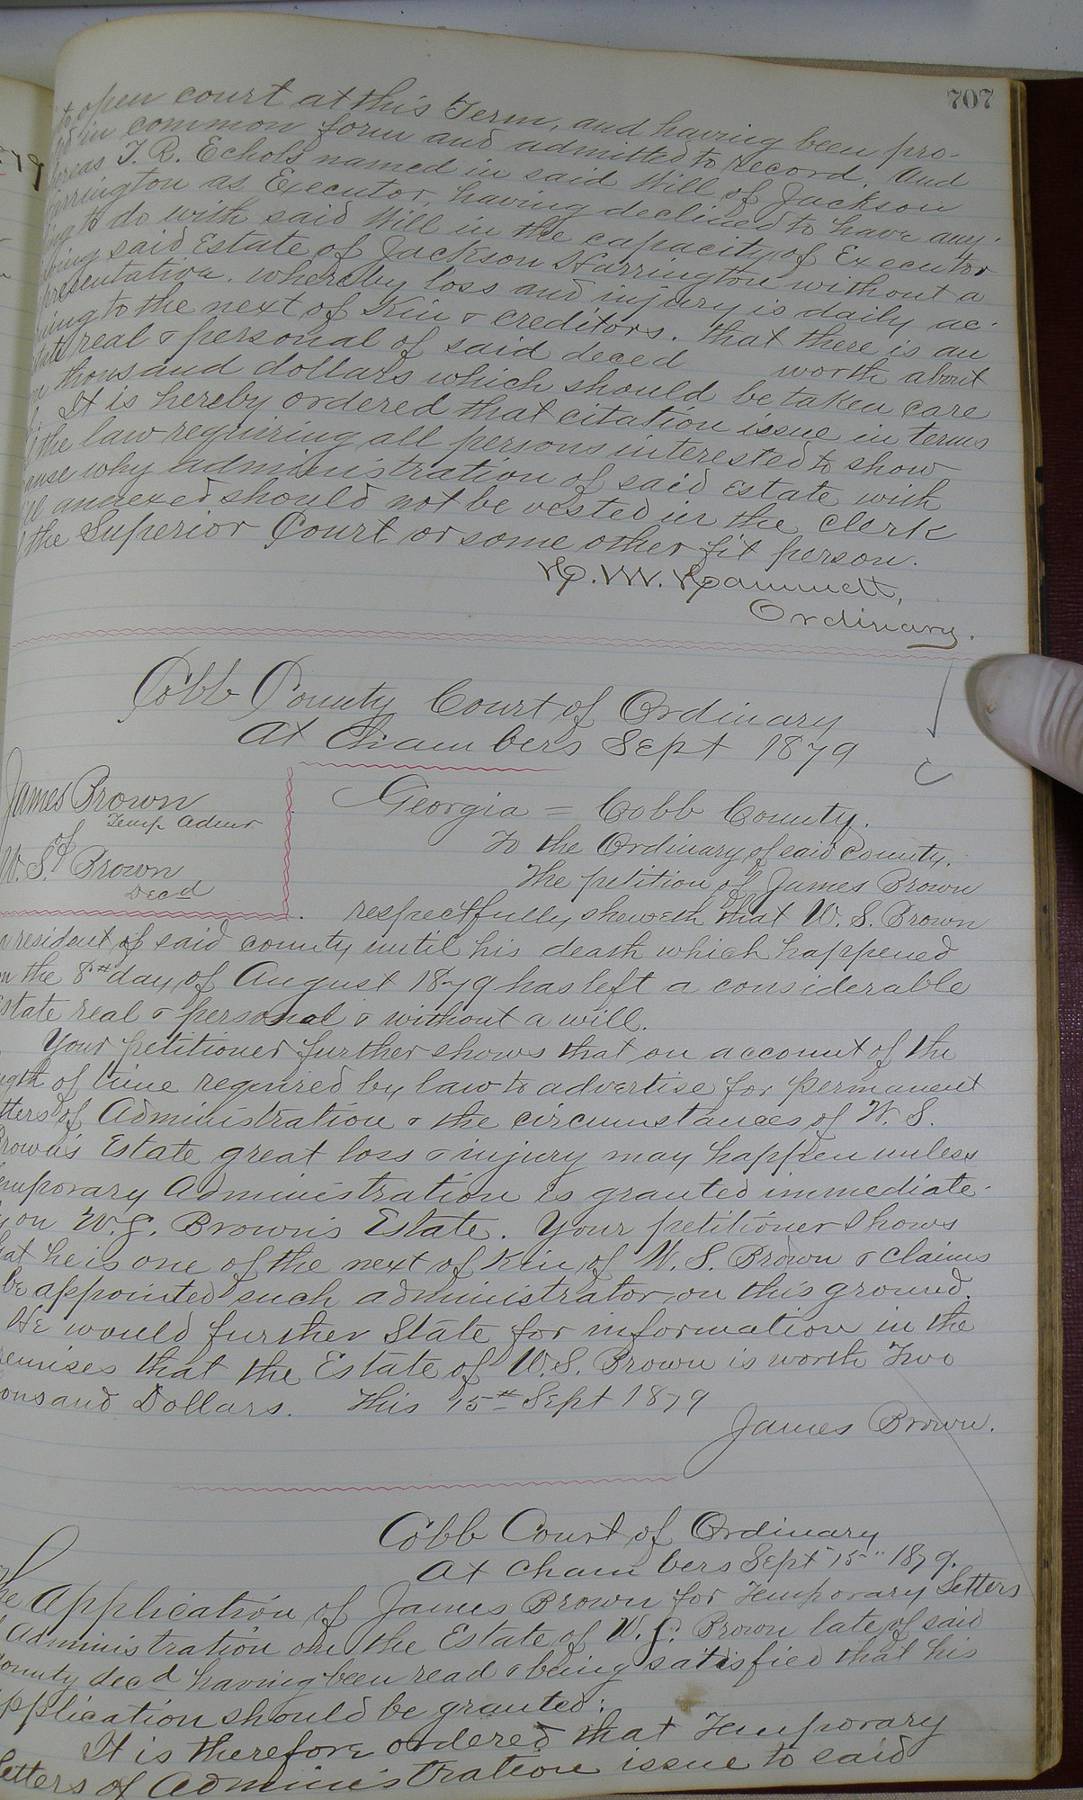 707
to open court at this Term, and having been pro-
in common form and admitted to record. And
T. R. Echols named in said Will of Jackson
Harrington as Executor, having declined to have any-
to do with said Will in the capacity of Executor
said Estate of Jackson Harrington without a
representative. whereby loss and injury is daily ac-
to the next of Kin & creditors. that there is an
real & personal of said deced worth about
thousand dollars which should be taken care
It is hereby ordered that citation issue in terms
the law requiring all persons interested to show
cause why administration of said Estate with
annexed should not be vested in the Clerk
the Superior Court or some other fit person.
H. M. Hammett,
Ordinary.
Cobb County Court of Ordinary
At Chambers Sept 1879
James Brown
Temp. Admr.
of
W. S. Brown
Decd
Georgia = Cobb County.
To the Ordinary of said County.
The petition of James Brown
respectfully sheweth that W. S. Brown
a resident of said county until his death which happened
on the 8th day of August 1879 has left a considerable
Estate real & personal & without a will.
Your petitioner further shows that on account of the
length of time required by law to advertise for permanent
letters of Administration & the circumstances of W. S.
Brown's Estate great loss & injury may happen unless
temporary Administration is granted immediate-
ly on W. S. Brown's Estate. Your petitioner shows
that he is one of the next of Kin of W. S. Brown & claims
be appointed such administrator on this ground.
He would further State for information in the
premises that the Estate of W. S. Brown is worth Two
thousand Dollars. This 15th Sept 1879
James Brown.
Cobb Court of Ordinary
At Chambers Sept 15" 1879.
The Application of James Brown for Temporary Letters
Administration on the Estate of W. S. Brown late of said
County decd having been read & being satisfied that his
application should be granted:
It is therefore ordered that Temporary
Letters of Administration issue to said